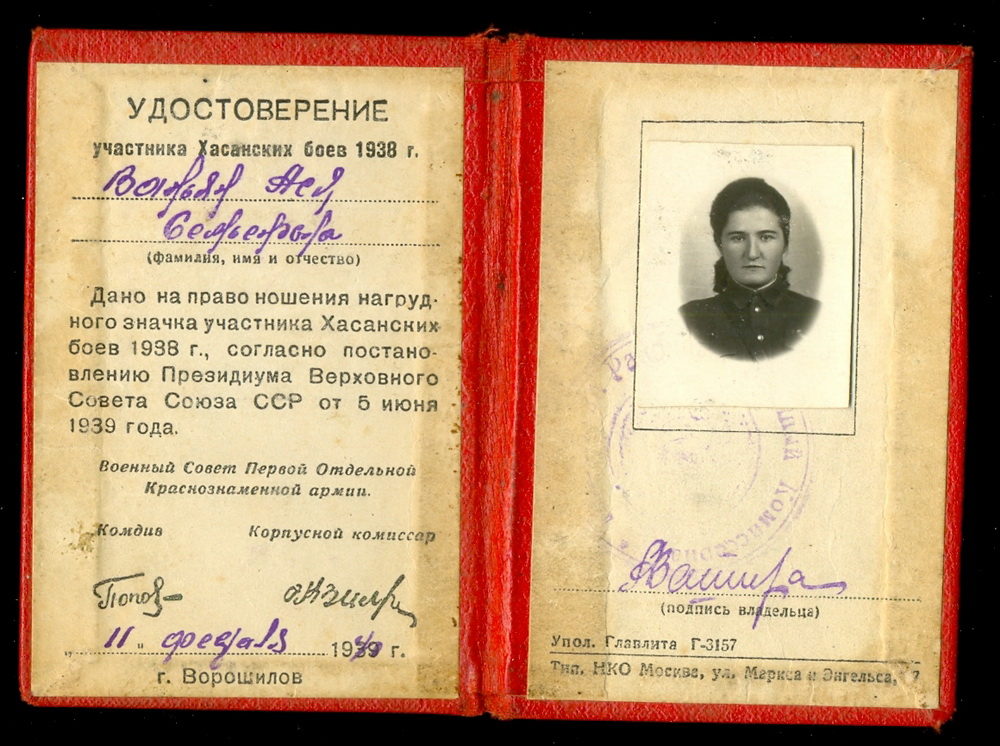 УДОСТОВЕРЕНИЕ
участника Хасанских боев 1938 г.
Ася
(фамилия, имя и отчество)
Дано на право ношения нагруд-
ного значка участника Хасанских
боев 1938 г., согласно постано-
влению Президиума Верховного
Совета Союза ССР от 5 июня
1939 года.
Военный Совет Первой Отдельной
Краснознаменной армии.
Комдив Корпусной комиссар
Попов
„ 11 " февраля 1940 г.
г. Ворошилов
(подпись владельца)
Упол. Главлита Г-3157
Тип. НКО Москва, ул. Маркса и Энгельса, 17